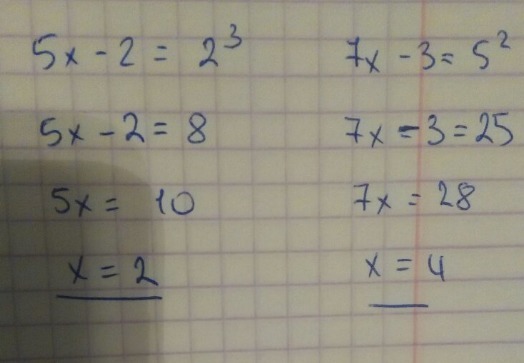 5x - 2 = 2³
5x - 2 = 8
5x = 10
x = 2
7x - 3 = 5²
7x - 3 = 25
7x = 28
x = 4